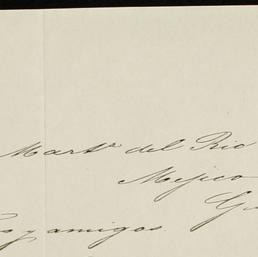 Martz. del Rio
Mejico
y amigos